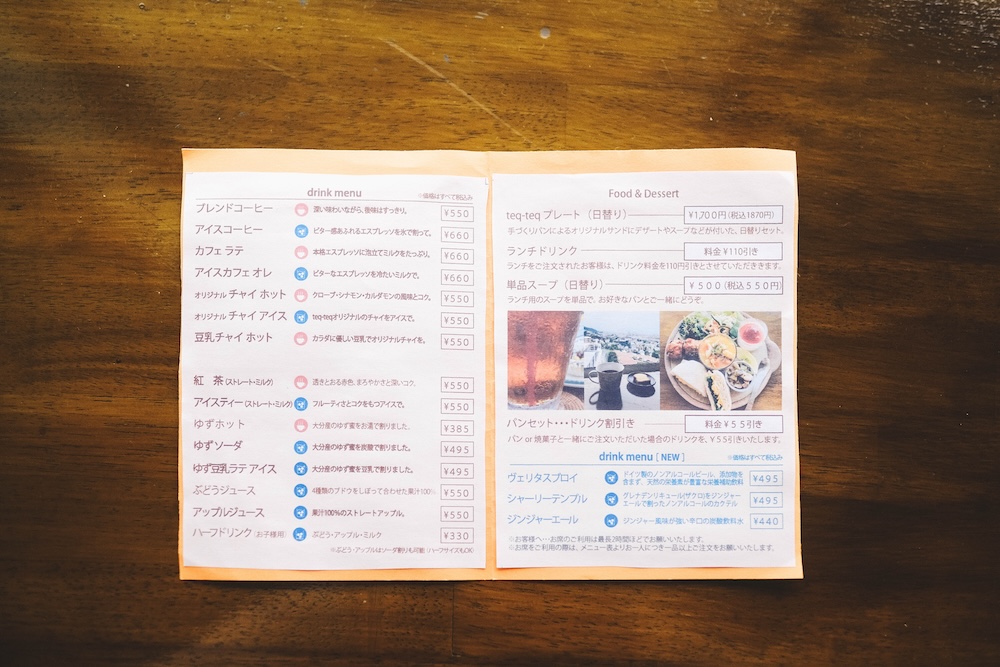 drink menu
※価格はすべて税込み
ブレンドコーヒー 深い味わいながら、後味はすっきり。 ¥550
アイスコーヒー ビター感あふれるエスプレッソを氷で割って。 ¥660
カフェ ラテ 本格エスプレッソに泡立てミルクをたっぷり。 ¥660
アイスカフェ オレ ビターなエスプレッソを冷たいミルクで。 ¥660
オリジナル チャイ ホット クローブ・シナモン・カルダモンの風味とコク。 ¥550
オリジナル チャイ アイス teq-teqオリジナルのチャイをアイスで。 ¥550
豆乳チャイ ホット カラダに優しい豆乳でオリジナルチャイを。 ¥550
紅 茶(ストレート・ミルク) 透きとおる赤色。まろやかさと深いコク。 ¥550
アイスティー(ストレート・ミルク) フルーティさとコクをもつアイスで。 ¥550
ゆずホット 大分産のゆず蜜をお湯で割りました。 ¥385
ゆずソーダ 大分産のゆず蜜を炭酸で割りました。 ¥495
ゆず豆乳ラテ アイス 大分産のゆず蜜を豆乳で割りました。 ¥495
ぶどうジュース 4種類のブドウをしぼって合わせた果汁100% ¥550
アップルジュース 果汁100%のストレートアップル。 ¥550
ハーフドリンク(お子様用) ぶどう・アップル・ミルク ¥330
※ぶどう・アップルはソーダ割りも可能(ハーフサイズもOK)
Food & Dessert
teq-teq プレート（日替り） ¥1,700円(税込1870円)
手づくりパンによるオリジナルサンドにデザートやスープなどが付いた、日替りセット。
ランチドリンク 料金 ¥110引き
ランチをご注文されたお客様は、ドリンク料金を110円引きとさせていただききます。
単品スープ（日替り） ¥500(税込550円)
ランチ用のスープを単品で。お好きなパンとご一緒にどうぞ。
パンセット・・・ドリンク割引き 料金 ¥55引き
パン or 焼菓子と一緒にご注文いただいた場合のドリンクを、¥55引きいたします。
drink menu [ NEW ]
※価格はすべて税込み
ヴェリタスブロイ ドイツ製のノンアルコールビール。添加物を
含まず、天然の栄養素が豊富な栄養補助飲料 ¥495
シャーリーテンプル グレナデンリキュール(ザクロ)をジンジャー
エールで割ったノンアルコールのカクテル ¥495
ジンジャーエール ジンジャー風味が強い辛口の炭酸飲料水 ¥440
※お客様へ…お席のご利用は最長2時間ほどでお願いいたします。
※お席をご利用の際は、メニュー表よりお一人につき一品以上ご注文をお願いいたします。